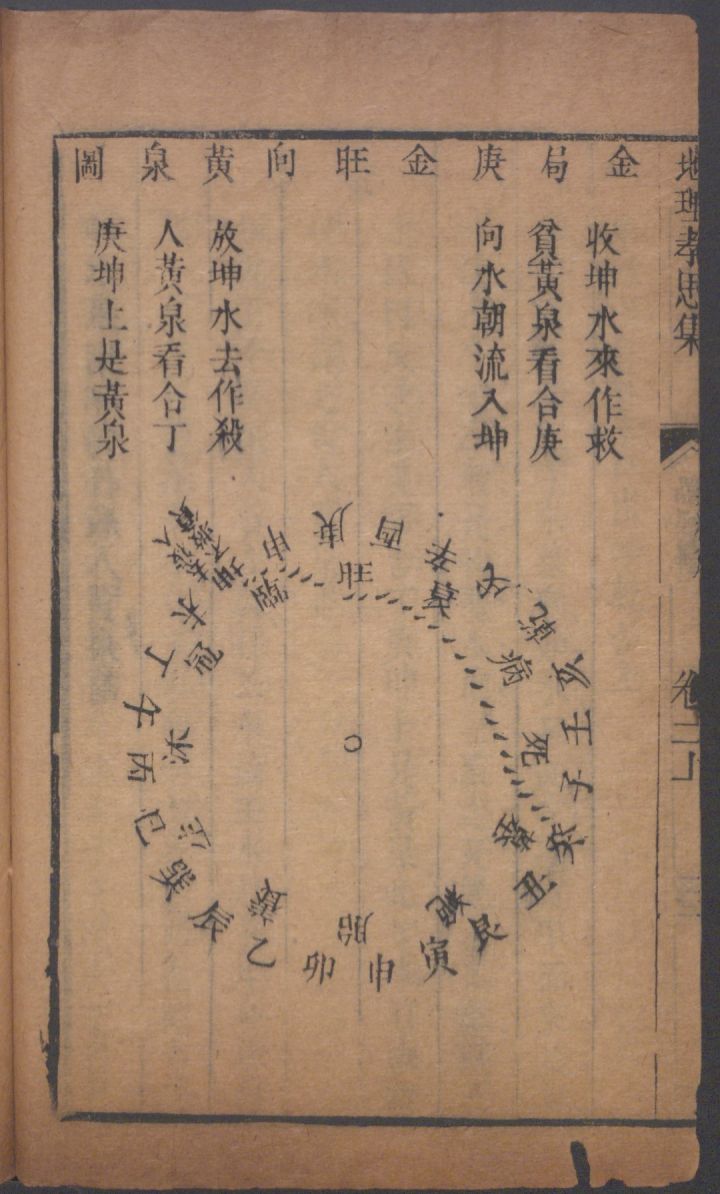 地理孝思集
卷二
金局庚金旺向黃泉圖
收坤水來作救
貧黃泉看合庚
向水朝流入坤
放坤水去作殺
人黃泉看合丁
庚坤上是黃泉
庚酉辛戌乾亥壬子癸丑艮寅甲卯乙辰巽巳丙午丁未坤申
旺衰病死墓絕胎養生沐冠臨